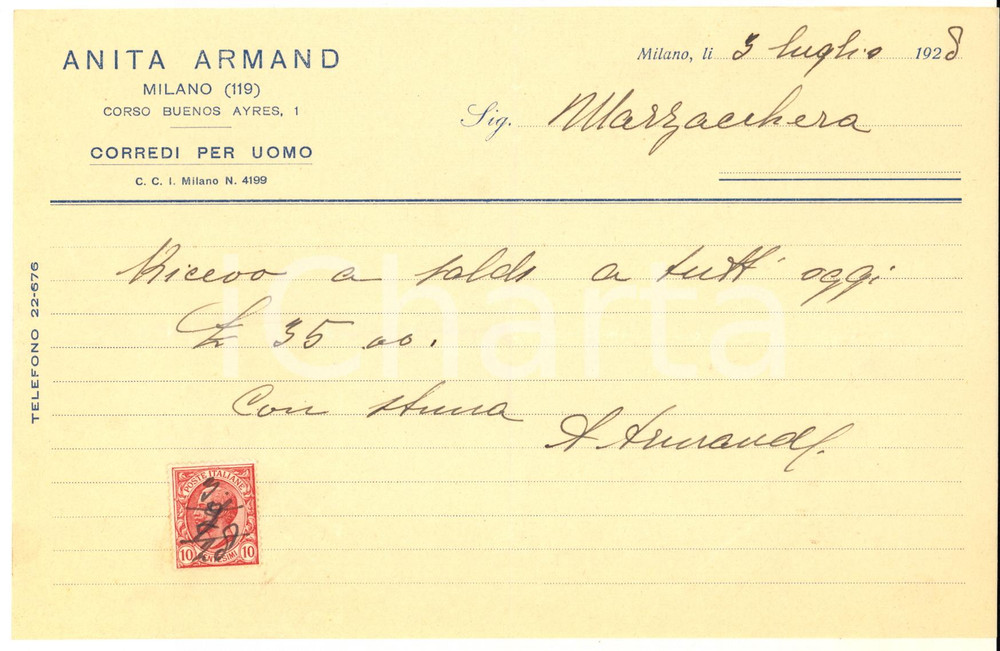 ANITA ARMAND
MILANO (119)
CORSO BUENOS AYRES, 1
CORREDI PER UOMO
C. C. I. Milano N. 4199
Milano, li 3 luglio 1928
Sig. Marzacchera
TELEFONO 22-676
Ricevo a saldo a tutt' oggi
£ 35 00.
Con stima
A Armand
iCharta
POSTE ITALIANE
10 CENTESIMI 10